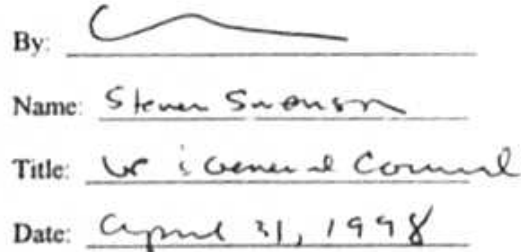 By:
Name: Steven Swanson
Title: VP & General Counsel
Date: April 21, 1998